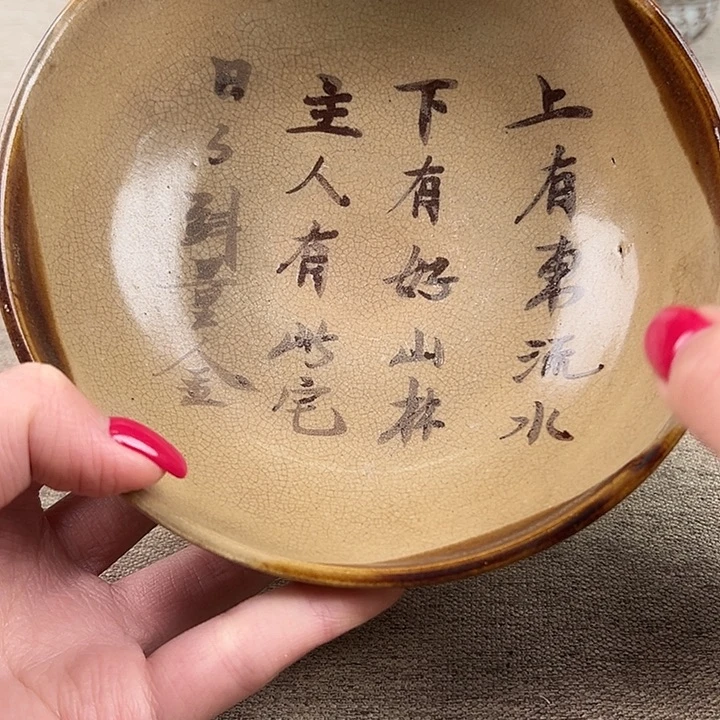 上有東流水
下有好山林
主人有此宅
日々斗量金